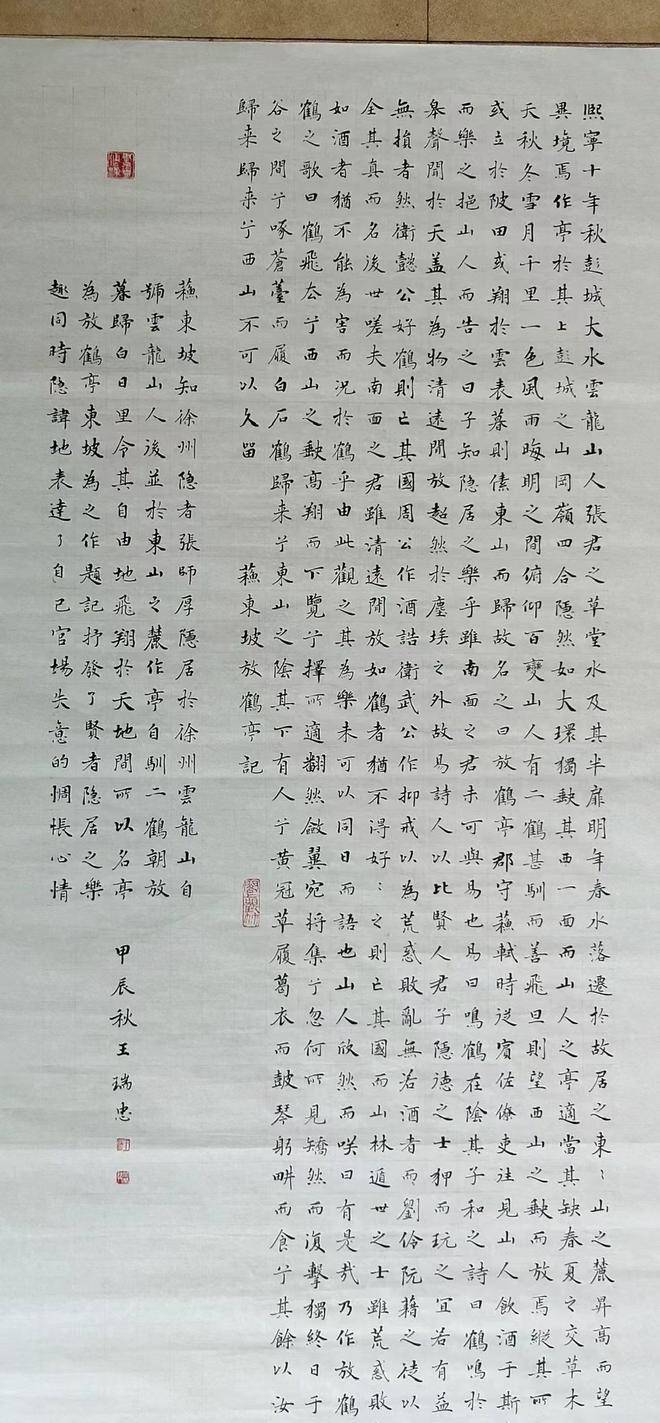 熙寧十年秋彭城大水雲龍山人張君之草堂水及其半扉明年春水落遷於故居之東〻山之麓昇高而望
異境焉作亭於其上彭城之山岡嶺四合隱然如大環獨缺其西一面而山人之亭適當其缺春夏之交草木
天秋冬雪月千里一色風雨晦明之間俯仰百變山人有二鶴甚馴而善飛旦則望西山之缺而放焉縱其所
或立於陂田或翔於雲表暮則傃東山而歸故名之曰放鶴亭郡守蘓軾時從賓佐僚吏往見山人飲酒于斯
而樂之挹山人而告之曰子知隐居之樂乎雖南面之君未可與易也易曰鳴鶴在陰其子和之詩曰鶴鳴於
皋聲聞於天盖其為物清遠閒放超然於塵埃之外故易詩人以比賢人君子隱德之士狎而玩之宜若有益
無損者然衛懿公好鶴則亡其國周公作酒誥衛武公作抑戒以為荒惑敗亂無若酒者而劉伶阮藉之徒以
全其真而名後世嗟夫南面之君雖清遠閒放如鶴者猶不得好〻之則亡其國而山林遁世之士雖荒惑敗
如酒者猶不能為害而況於鶴乎由此觀之其為樂未可以同日而語也山人欣然而咲曰有是哉乃作放鶴
鶴之歌曰鶴飛去兮西山之缺高翔而下覽兮擇所適翻然斂翼宛将集兮忽何所見矯然而復擊獨終日于
谷之間兮啄蒼薹而履白石鶴歸来兮東山之陰其下有人兮黄冠草履葛衣而鼓琴躬畊而食兮其餘以汝
歸来歸来兮西山不可以久留 蘓東坡放鶴亭記
蘓東坡知徐州隐者張師厚隱居於徐州雲龍山自
號雲龍山人後並於東山之麓作亭自馴二鶴朝放
暮歸白日里令其自由地飛翔於天地間所以名亭
為放鶴亭東坡為之作題記抒發了賢者隐居之樂
趣同時隐諱地表達了自己官場失意的惆悵心情
甲辰秋王瑞忠